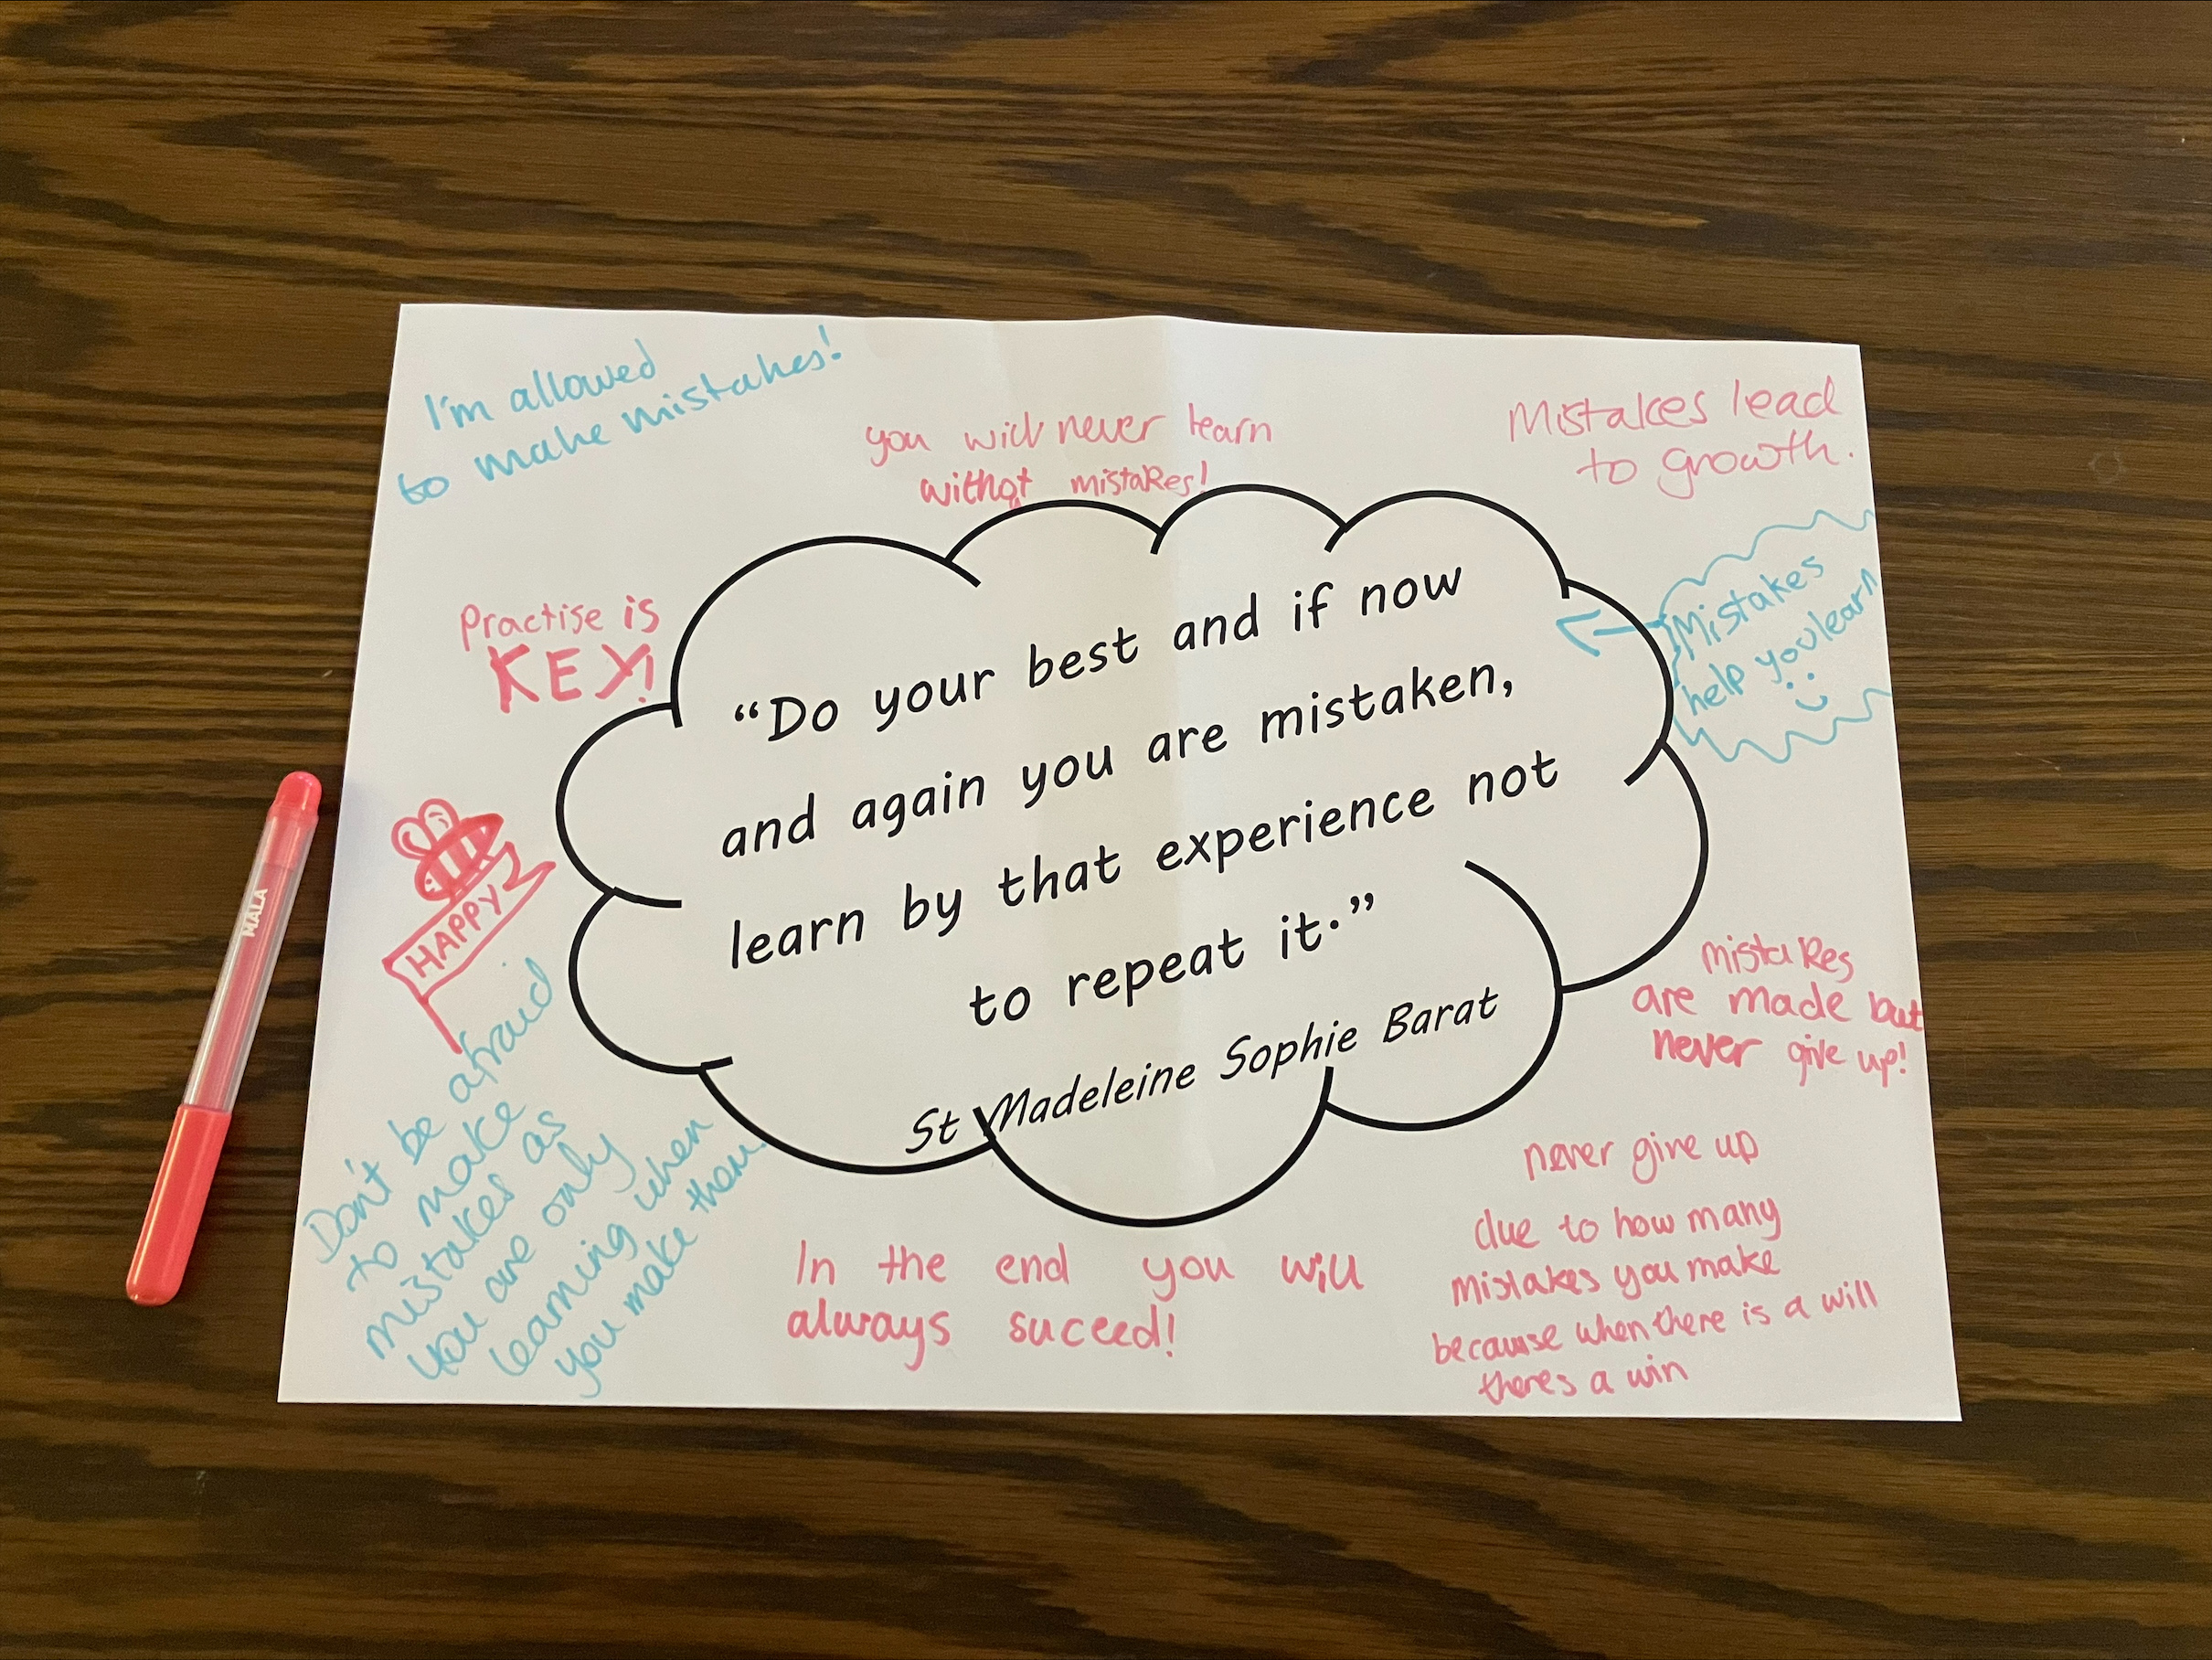 I'm allowed
to make mistakes!
you will never learn
without mistakes!
Mistakes lead
to growth.
Practise is
KEY!
Mistakes
help you learn
"Do your best and if now
and again you are mistaken,
learn by that experience not
to repeat it."
St Madeleine Sophie Barat
HAPPY
MALA
Don't be afraid
to make
mistakes as
you are only
learning when
you make them.
mistakes
are made but
never give up!
In the end you will
always suceed!
never give up
due to how many
mistakes you make
because when there is a will
theres a win